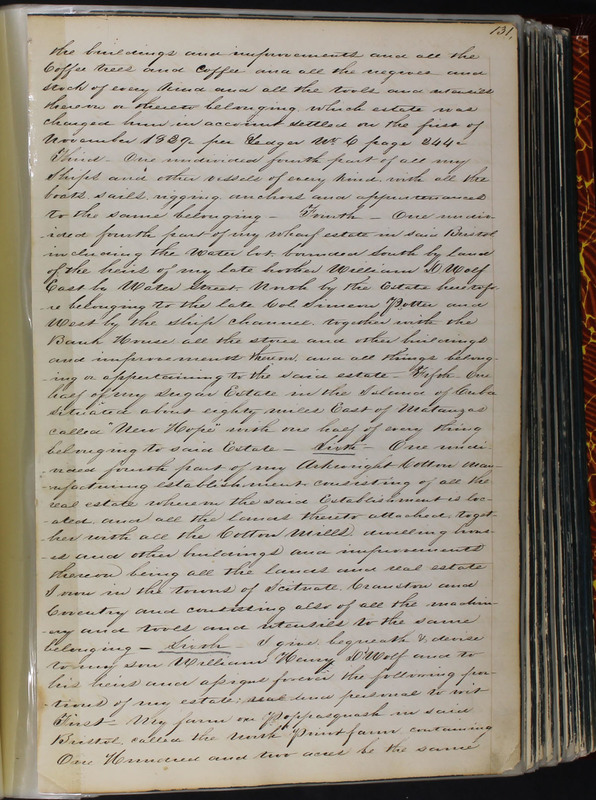 131,
the buildings and improvements and all the
Coffee trees and Coffee and all the negroes and
Stock of every kind and all the tools and utensils
therein or thereto belonging, which estate was
charged him in account settled on the first of
November 1829 per Ledger No. 6 page 244
Third - One undivided fourth part of all my
Ships and other vessels of every kind with all the
boats, sails, rigging, anchors and appurtenances
to the same belonging - Fourth - One undiv-
-ided fourth part of my wharf estate in said Bristol
including the Water lot, bounded South by land
of the heirs of my late brother William D'Wolf
East by Water Street, North by the Estate heretofo-
re belonging to the late Col Simeon Potter and
West by the Ship channel, together with the
Bank House, all the stores and other buildings
and improvements thereon, and all things belong-
-ing or appertaining to the said estate - Fifth - One
half of my Sugar Estate in the Island of Cuba
Situated about eighty miles East of Matanzas
called "New Hope" with one half of every thing
belonging to said Estate - Sixth - One undi-
-vided fourth part of my Arkwright Cotton Man-
-ufacturing establishment, consisting of all the
real estate wherein the said Establishment is loc-
-ated, and all the lands thereto attached, toget-
her with all the Cotton Mills, dwelling hous-
-es and other buildings and improvements
thereon being all the lands and real estate
I own in the towns of Scituate, Cranston and
Coventry and consisting also of all the machin-
-ery and tools and utensils to the same
belonging - Sixth - I give, bequeath & devise
to my son William Henry D'Wolf and to
his heirs and assigns forever the following por-
-tions of my estate, real and personal to wit
First - My farm on Poppasquash in said
Bristol, called the North Point farm, containing
One Hundred and two acres be the same